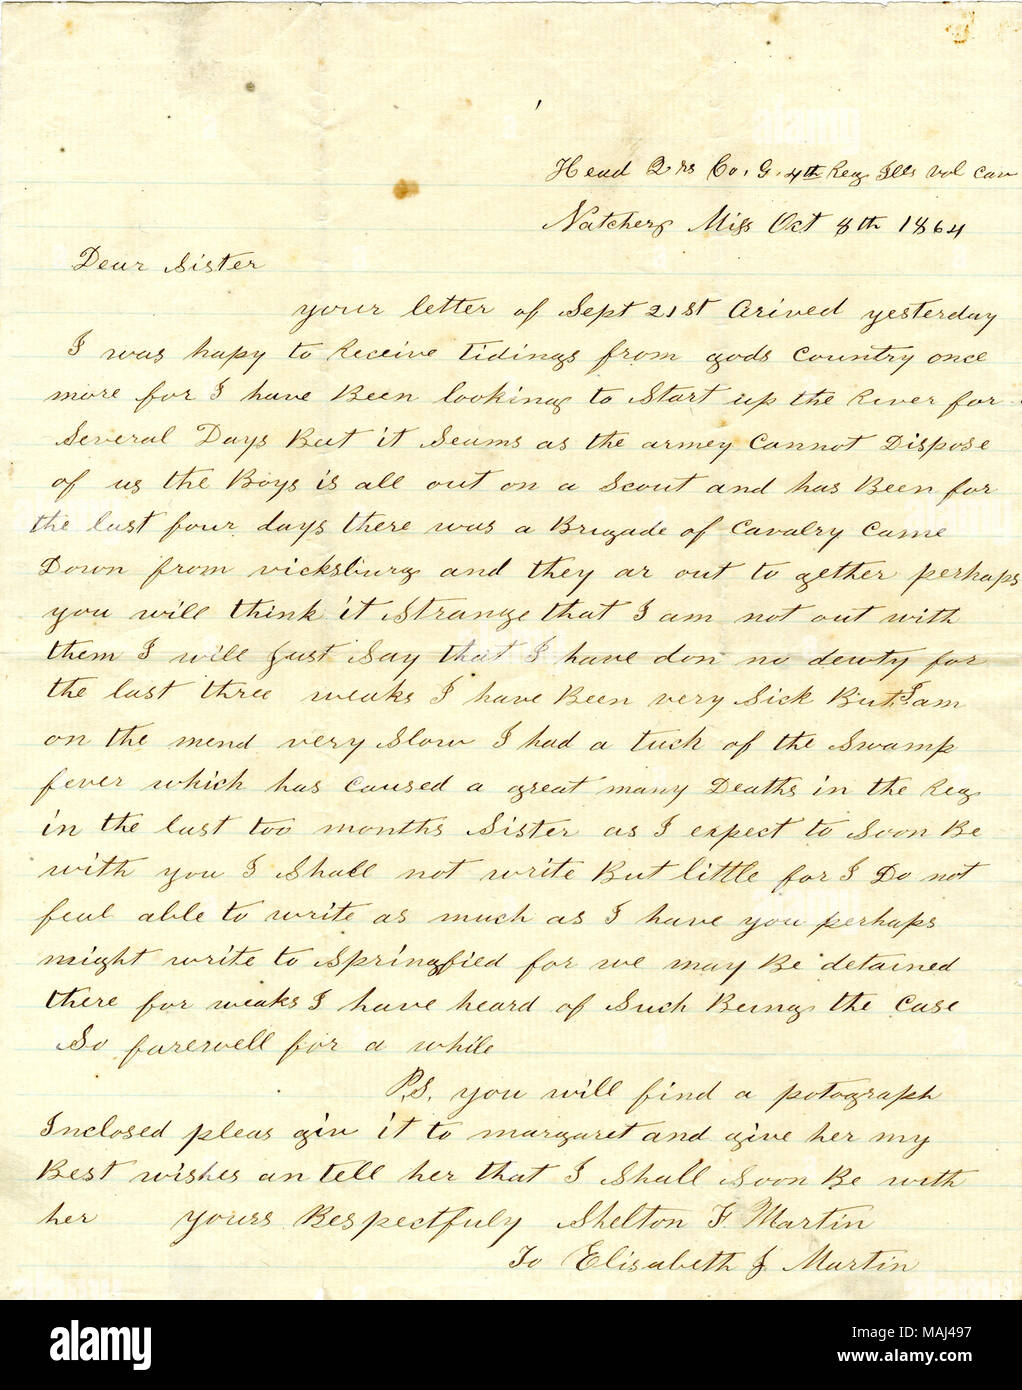 Head Qrs Co. G. 4th Reg Ills vol Cav
Natcherz Miss Oct 8th 1864
Dear Sister
your letter of Sept 21st Arived yesterday
I was hapy to Receive tidings from gods Country once
more for I have Been looking to Start up the River for
Several Days But it Seams as the armey Cannot Dispose
of us the Boys is all out on a Scout and has Been for
the last four days there was a Brigade of Cavalry Came
Down from vicksburg and they ar out to gether perhaps
you will think it Strange that I am not out with
them I will Just Say that I have don no dewty for
the last three weaks I have Been very Sick But I am
on the mend very Slow I had a tuck of the Swamp
fever which has Caused a great many Deaths in the Reg
in the last too months Sister as I expect to Soon Be
with you I Shall not write But little for I Do not
feal able to write as much as I have you perhaps
might write to Springfied for we may Be detained
there for weaks I have heard of Such Being the Case
So farewell for a while
P.S. you will find a potograph
Inclosed pleas giv it to margaret and give her my
Best wishes an tell her that I Shall Soon Be with
her yours Respectfuly Shelton F Martin
To Elisabeth J Martin
alamy
Image ID: MAJ497
www.alamy.com